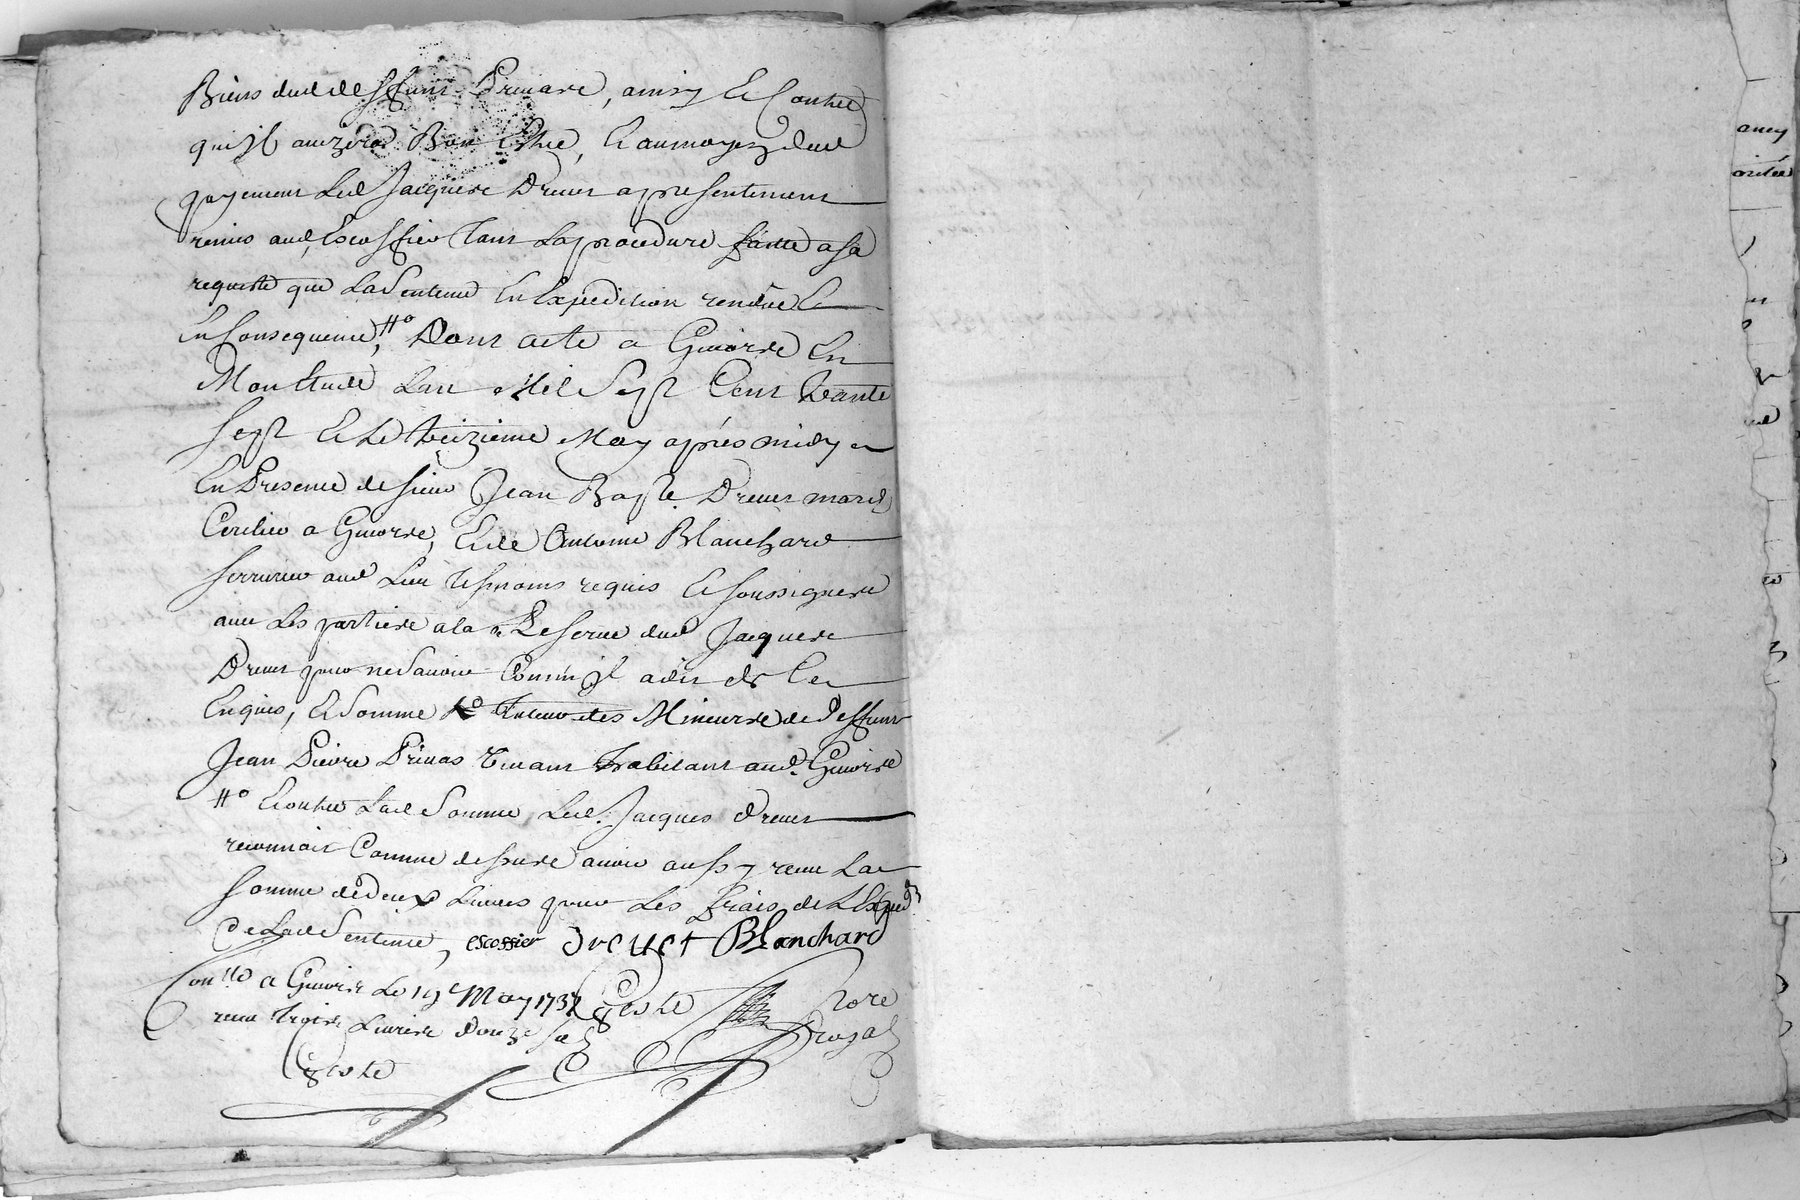 Biens dud deffunt Privare, ainsy et Contre
quil avizera Bon Estre, Et au moyen dud
payement Led Jacquese Drevet a presentement
remis aud Escoffier tant La procedure faitte a sa
requette que La Sentence En Expedition rendüe Et
En Consequence, Dont acte a Guiorse En
Lan Mil Sept Cent trante
Sept Et Le treizieme May après midy
En Presence de sieur Jean Bapte. Drevet marchd
a Guiorse, Et de Antoine Blanchard
serrurier aud Lieu tesmoins requis Et soussignese
avec Les partiese a la Reserve dud Jacquese
Drevet pour ne Savoir Comm'jl a dit de Ce
Enquis, Et Somme tuteur des Mineurse de deffunt
Jean Pierre Privas vivant habitant aud. Guiorse
Et outre Lad Somme Led. Jacques Drevet
reconnoit Comme dessuse avoir aussy receu La
somme de deux Livres pour Les fraix de LExped.
De Lad Sentence, escossier drevet Blanchard
Conllé a Guiorse Le 19e May 1737
receu troise Livrese douze sols